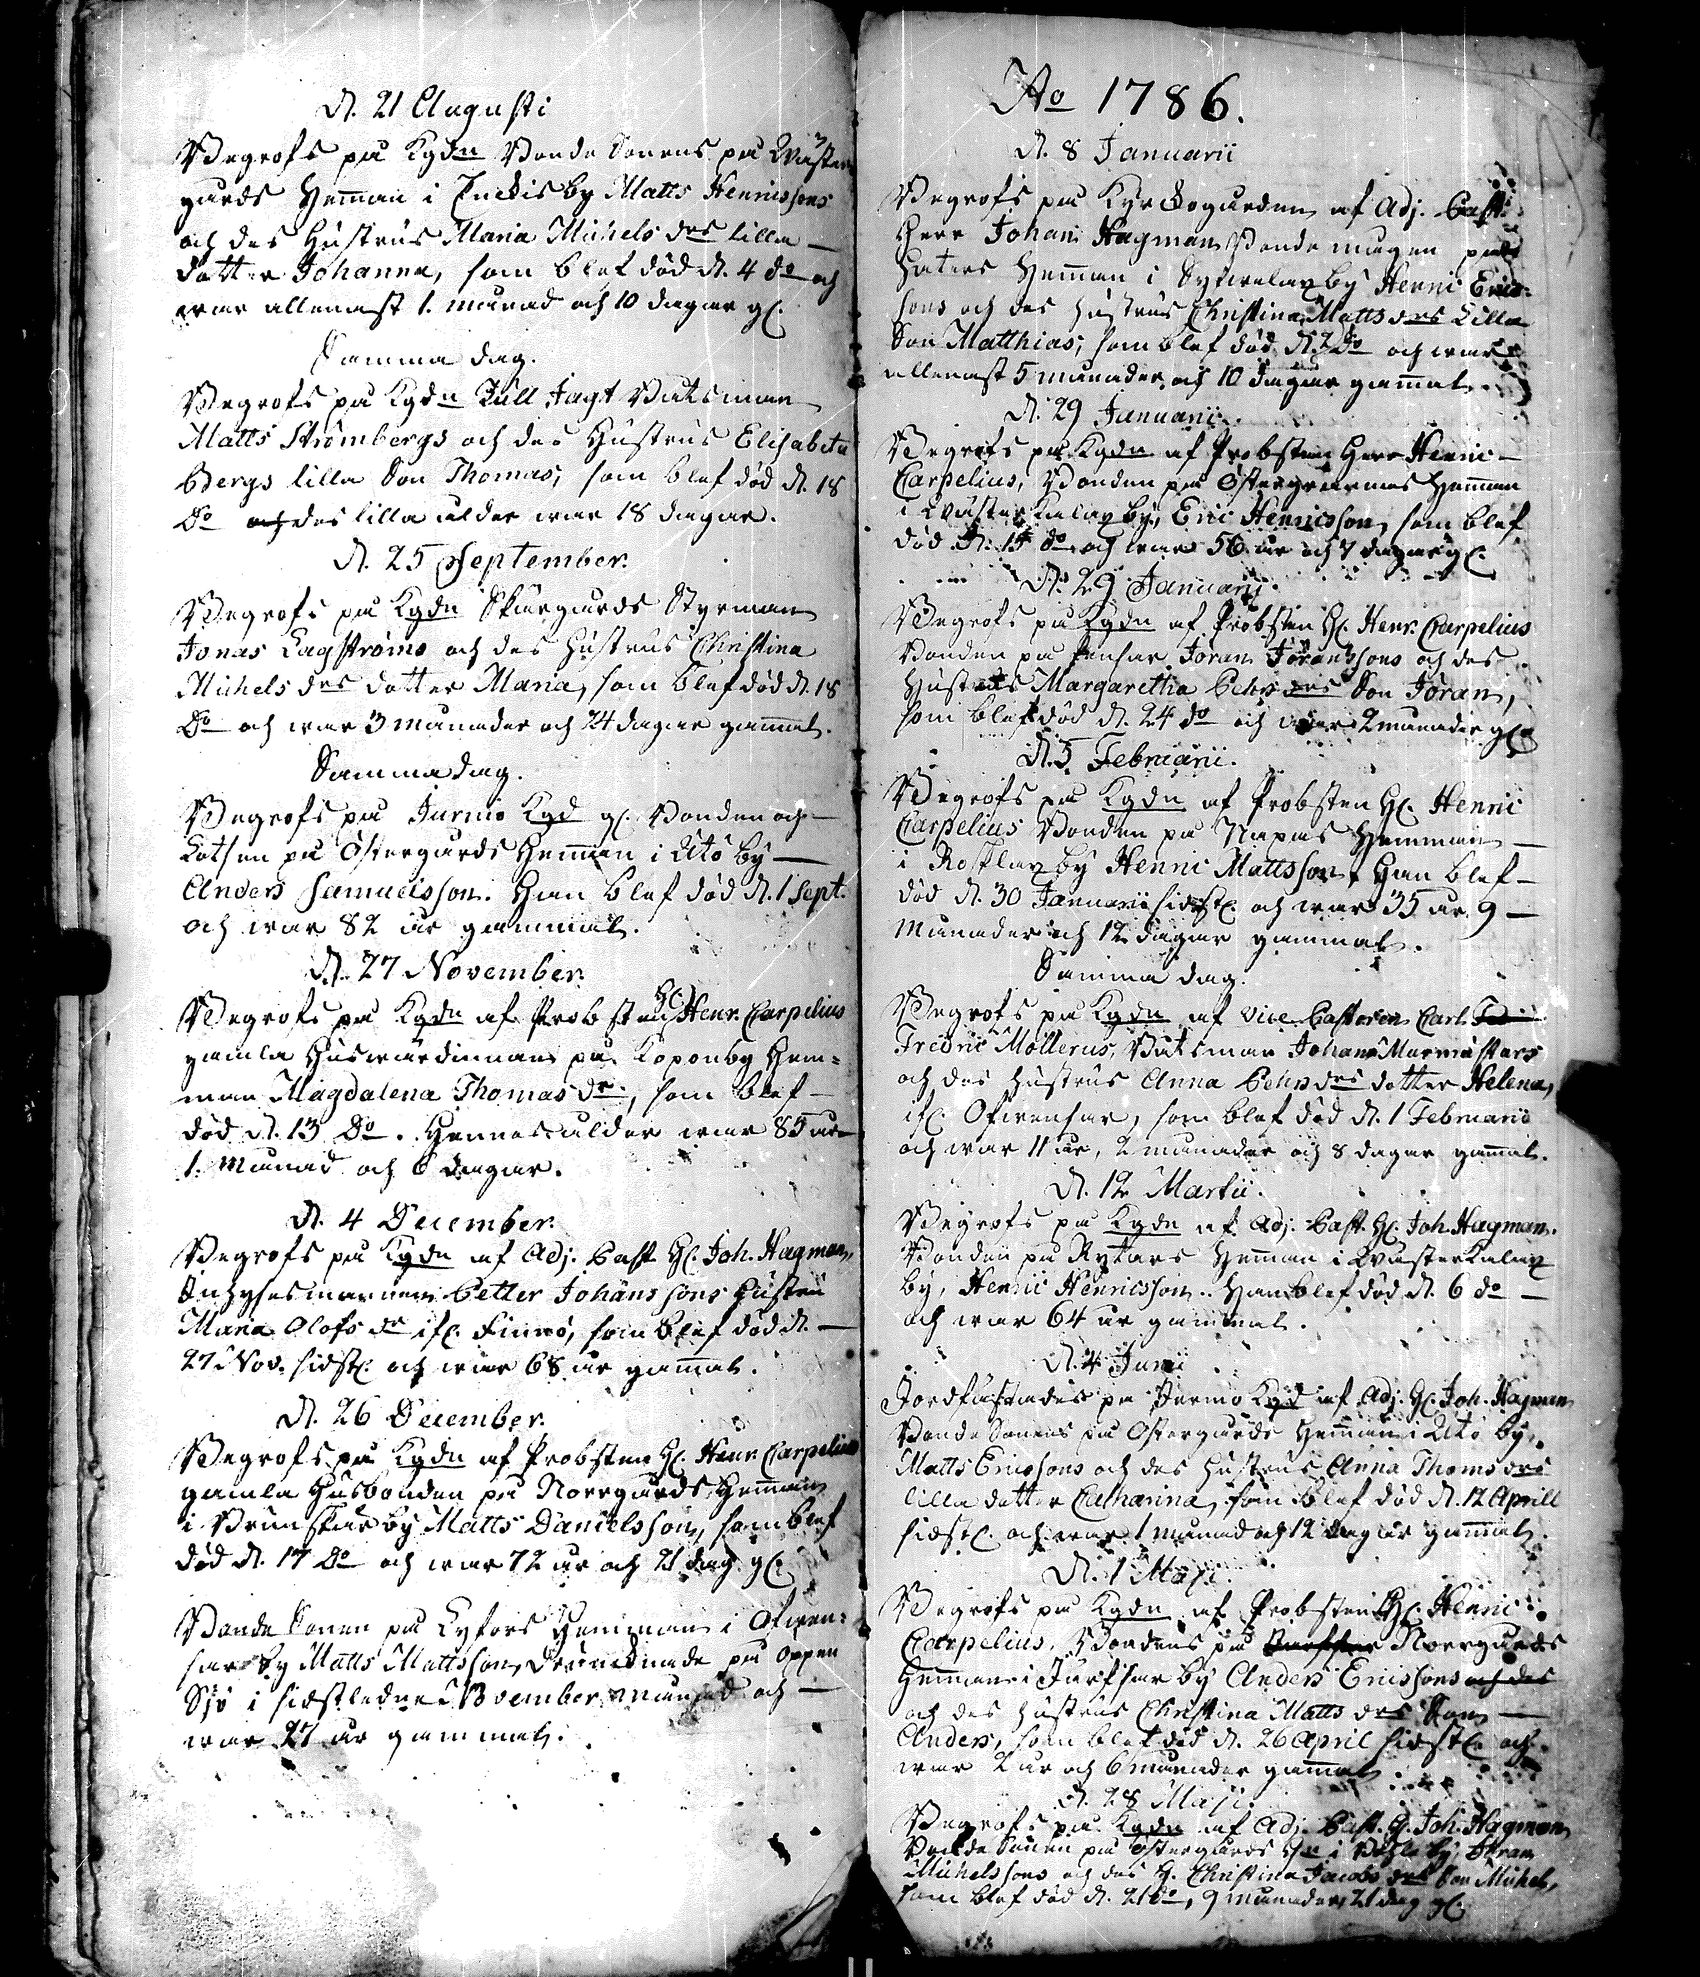 d. 21 Augusti
Begrofs på Kgdn Bonde Sonens på Wäster
gårds Heman i Enckisby Matts Henricssons
och des Hustrus Maria Michels drs lilla
dotter Johanna, som blef död d. 4 do och
war allenast 1. månad och 10 dagar gl.
Samma dag.
Begrofs på Kgdn Tull Jagt Båtsman
Matts Strömbergs och des Hustrus Elisabeta
Bergs lilla Son Thomas, som blef död d. 18
Do och des lilla ålder war 18 dagar.
d. 25 September.
Begrofs på Kgdn Skärgårds Styrman
Jonas Lagströms och des Hustrus Christina
Michels drs dotter Maria, som blef död d. 18
Do och war 3 månader och 24 dagar gamal.
Samma dag.
Begrofs på Jurmo Kgd gl. Bonden och
Lotsen på Östergårds Heman i Utö by
Anders Samuelsson. Han blef död d. 1 Sept.
och war 82 år gammal.
d. 27 November.
Begrofs på Kgdn af Probsten Hl. Henr. Carpelius
gamla Huswärdinnan på Koponby Hem=
man Magdalena Thomas dr, som blef
död d. 13 Do. Hennes ålder war 85 år
1. månad och 6 dagar.
d. 4 December.
Begrofs på Kgdn af Adj. Past. Hl. Joh. Hagman,
Inhysesmannen Petter Johanssons Hustru
Maria Olofs dr ifl. Finnö, som blef död d.
27 Nov. sidstl. och war 68 år gamal.
d. 26 December.
Begrofs på Kgdn af Probsten Hl. Henr. Carpelius
gamla Husbonden på Norrgårds Heman
i Brunskär by Matts Danielsson, som blef
död d. 17 Do och war 72 år och 21 dag. gl.
Bonde Sonen på Lyfors Hemman i Ofwen=
sar by Matts Mattsson, drunknade på Oppen
Sjö i sidstledne November månad och
war 27 år gammal.
Ao 1786.
d. 8 Januarii
Begrofs på Kyrckogården af Adj. Past.
Herr Johan Hagman, Bonde mågen på
Haters Heman i Sytterlax by Henric Erics=
sons och des hustrus Christina Matts drs Lilla
Son Matthias, som blef död d. 2 Do och war
allenast 5 månader och 10 dagar gamal.
d. 29 Januarii.
Begrofs på Kgdn af Probsten Herr Henric
Carpelius, Bonden på Östergrannas Heman
i Wäster Kalax by, Eric Henricsson, som blef
död d. 15 do och war 56 år och 7 dagar gl.
d. 29 Januarii.
Begrofs på Kgdn af Probsten Hl. Henr. Carpelius
Bonden på Pensar Jöran Jöranssons och des
Hustrus Margaretha Pehrs drs Son Jöran,
som blef död d. 24 do och war 2 månader gl.
d. 5 Februarii.
Begrofs på Kgdn af Probsten Hl. Henric
Carpelius Bonden på Napas Hemman
i Rosklax by Henric Mattsson. Han blef
död d. 30 Januarii sidstl. och war 35 år 9
månader och 12 dagar gammal.
Samma dag.
Begrofs på Kgdn af Vice Pastoren Carl
Fredric Möllerus, Båtsman Johan Murmästars
och des Hustrus Anna Pehrs drs dotter Helena,
ifl. Ofwensar, som blef död d. 1 Februarii
och war 11 år, 2 månader och 8 dagar gamal.
d. 12 Martii.
Begrofs på Kgdn af Adj. Past. Hl. Joh. Hagman.
Bonden på Rytars Heman i Wäster Kalax
by, Henric Henricsson. Han blef död d. 6 do
och war 64 år gammal.
d. 4 Juni
Jordfästades på Jurmo Kgd af Adj. Hl. Joh. Hagman
Bonde Sonens på Östergårds Heman i Utö by,
Matts Ericssons och des hustrus Anna Thoms drs
lilla dotter Catharina, som blef död d. 12 Aprill
sidstl. och war 1 månad och 12 dagar gamal.
d. 1 Maji.
Begrofs på Kgdn af Probsten Hl. Henric
Carpelius, Bondens på Norrgårds
Heman i Järfsar by Anders Ericssons och des
och des hustrus Christina Matts drs Son
Anders, som blef död d. 26 April sidstl. och
war 2 år och 6 månader gamal.
d. 28 Maji.
Begrofs på Kgdn af Adj. Past. Hl. Joh. Hagman
Bonde Sonen på Östergårds Hn i by,
Michelssons och des H. Christina Jacobs drs Son Michel,
som blef död d. 21 do, 9 månader, 21 dag gl.